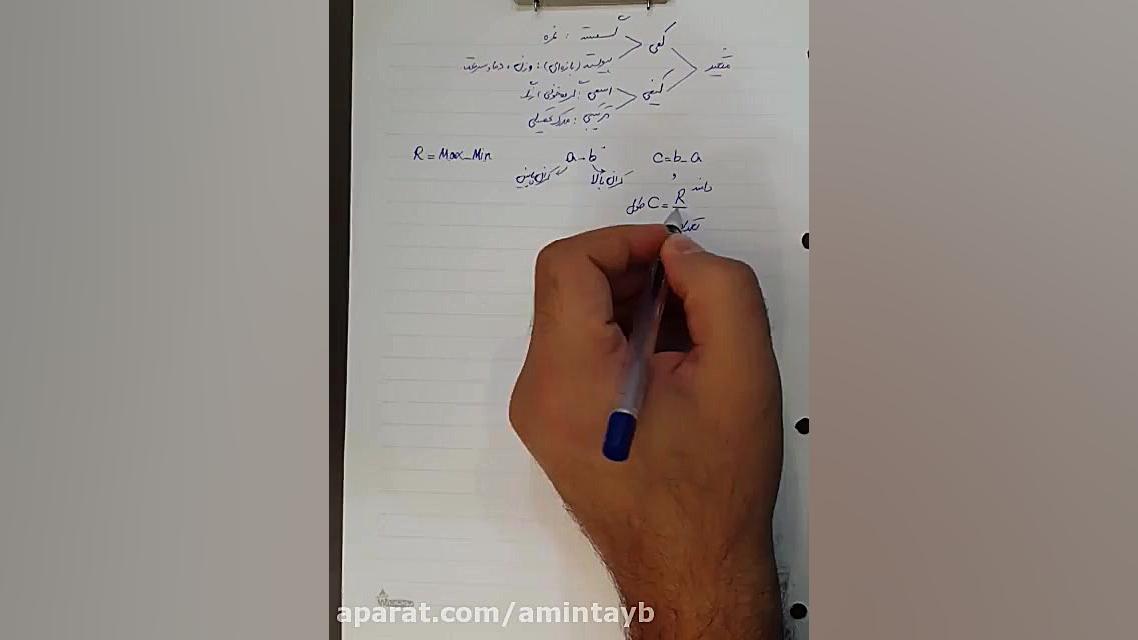 متغیر
کمی
گسسته : نمره
پیوسته (بازه‌ای) : وزن ، دما، سرعت
کیفی
اسمی : گروه خونی،
ترتیبی : مدرک تحصیلی
C=b-a
a-b
کران بالا
کران پایین
R = Max-Min
طول C = R
دامنه
تعداد
aparat.com/amintayb